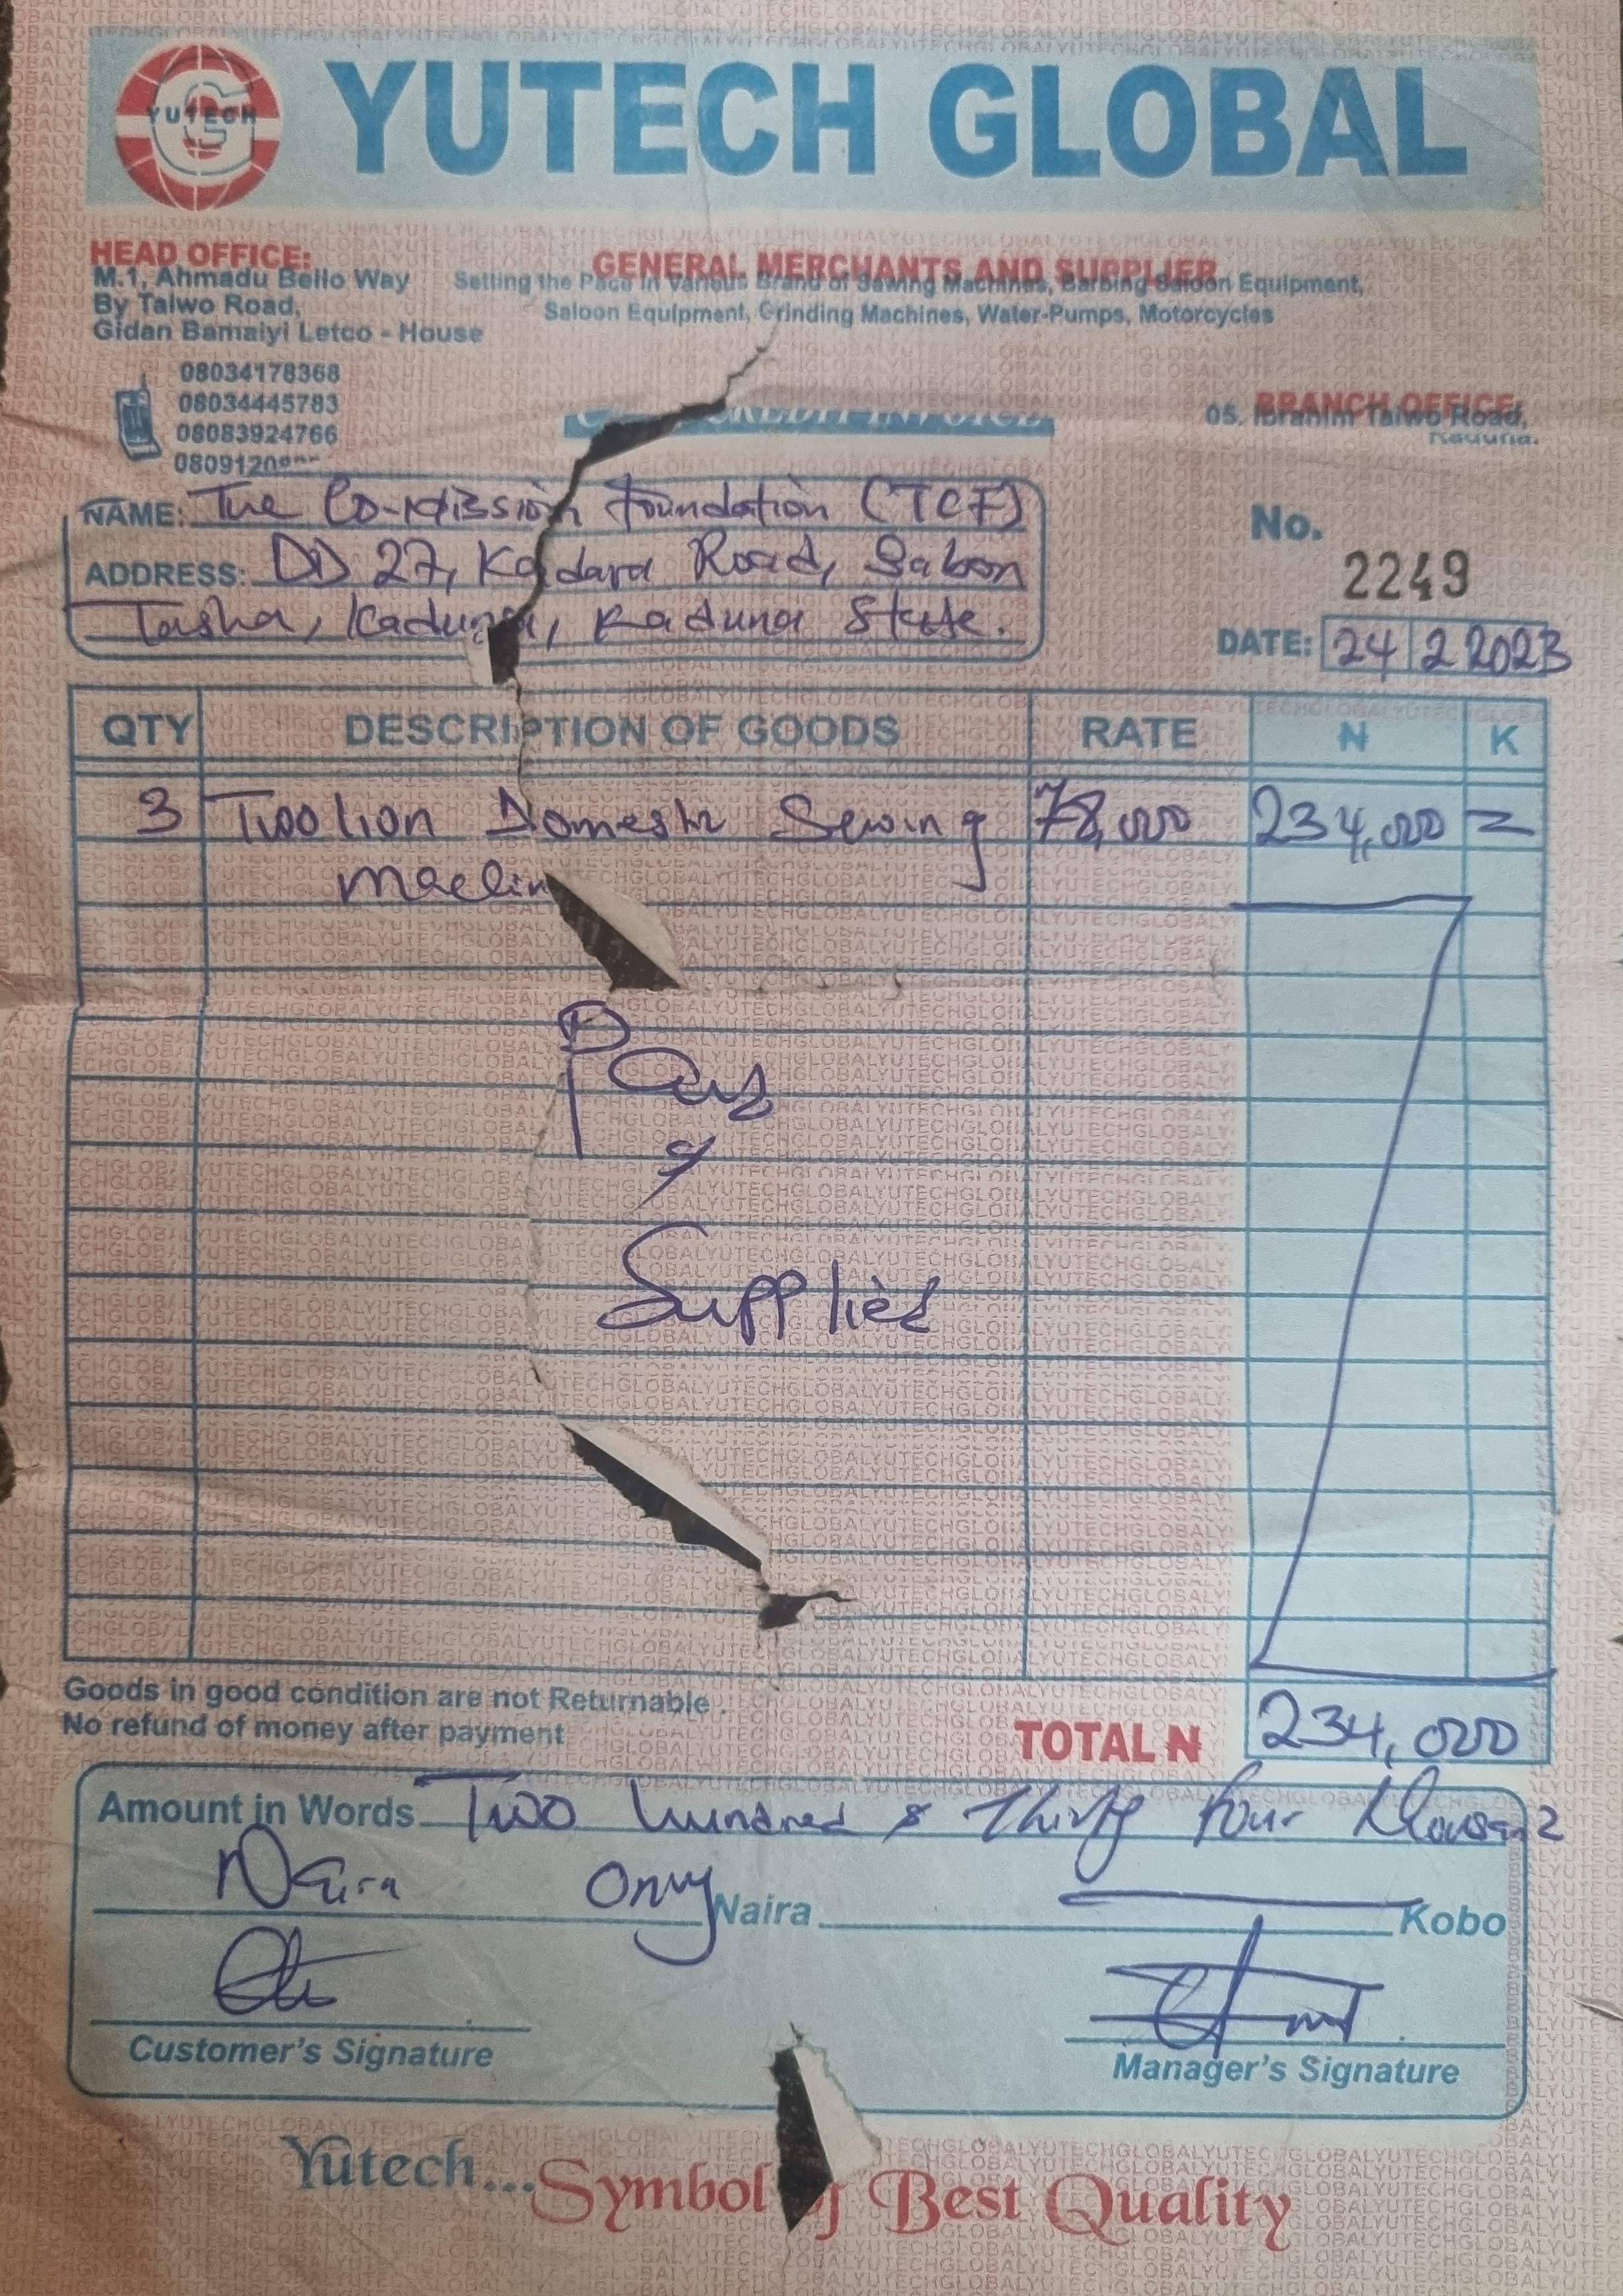 YUTECH
G
YUTECH GLOBAL
HEAD OFFICE:
M.1, Ahmadu Bello Way
By Taiwo Road,
Gidan Bamaiyi Letco - House
GENERAL MERCHANTS AND SUPPLIER
Setting the Pace in Various Brand of Sewing Machines, Barbing Saloon Equipment,
Saloon Equipment, Grinding Machines, Water-Pumps, Motorcycles
08034178368
08034445783
08083924766
0809120
CREDIT INVOICE
BRANCH OFFICE:
05. Ibrahim Taiwo Road,
Kaduna.
NAME: The Co-Mission Foundation (TCF)
ADDRESS: DD 27, Kadara Road, Sabon
Tasha, Kaduna, Kaduna State.
No.
2249
DATE: 24 2 2023
QTY DESCRIPTION OF GOODS RATE ₦ K
3 Two lion Domestic Sewing 78,000 234,000 =
Machin
Paid
&
Supplied
Goods in good condition are not Returnable.
No refund of money after payment
TOTAL ₦ 234,000
Amount in Words Two hundred & Thirty four thousand
Naira Only Naira Kobo
Customer's Signature
Manager's Signature
Yutech... Symbol of Best Quality